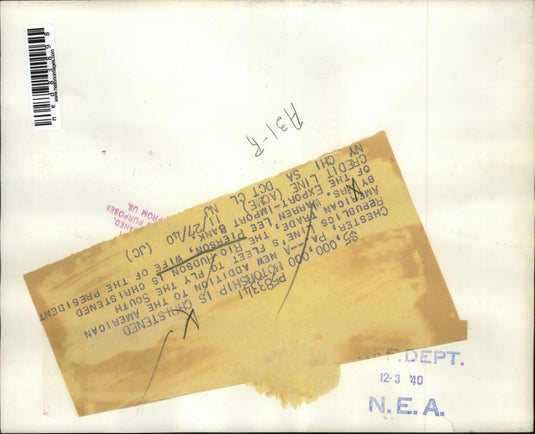 ned838898
www.historicimages.com
A31-R
P583341
$5,000,000 MOTORSHIP IS CHRISTENED
CHESTER, PA.--A NEW ADDITION TO THE AMERICAN
REPUBLICS LINE'S FLEET TO PLY THE SOUTH
AMERICAN THE RIO HUDSON, IS CHRISTENED
BY MRS. WARREN LEE PIERSON, WIFE OF THE PRESIDENT
OF THE EXPORT-IMPORT BANK (JC)
CREDIT LINE (ACME) 11/27/40
NY CHI SA DCT CL NL
PURPOSES
FROM US.
DEPT.
12-3 '40
N.E.A.